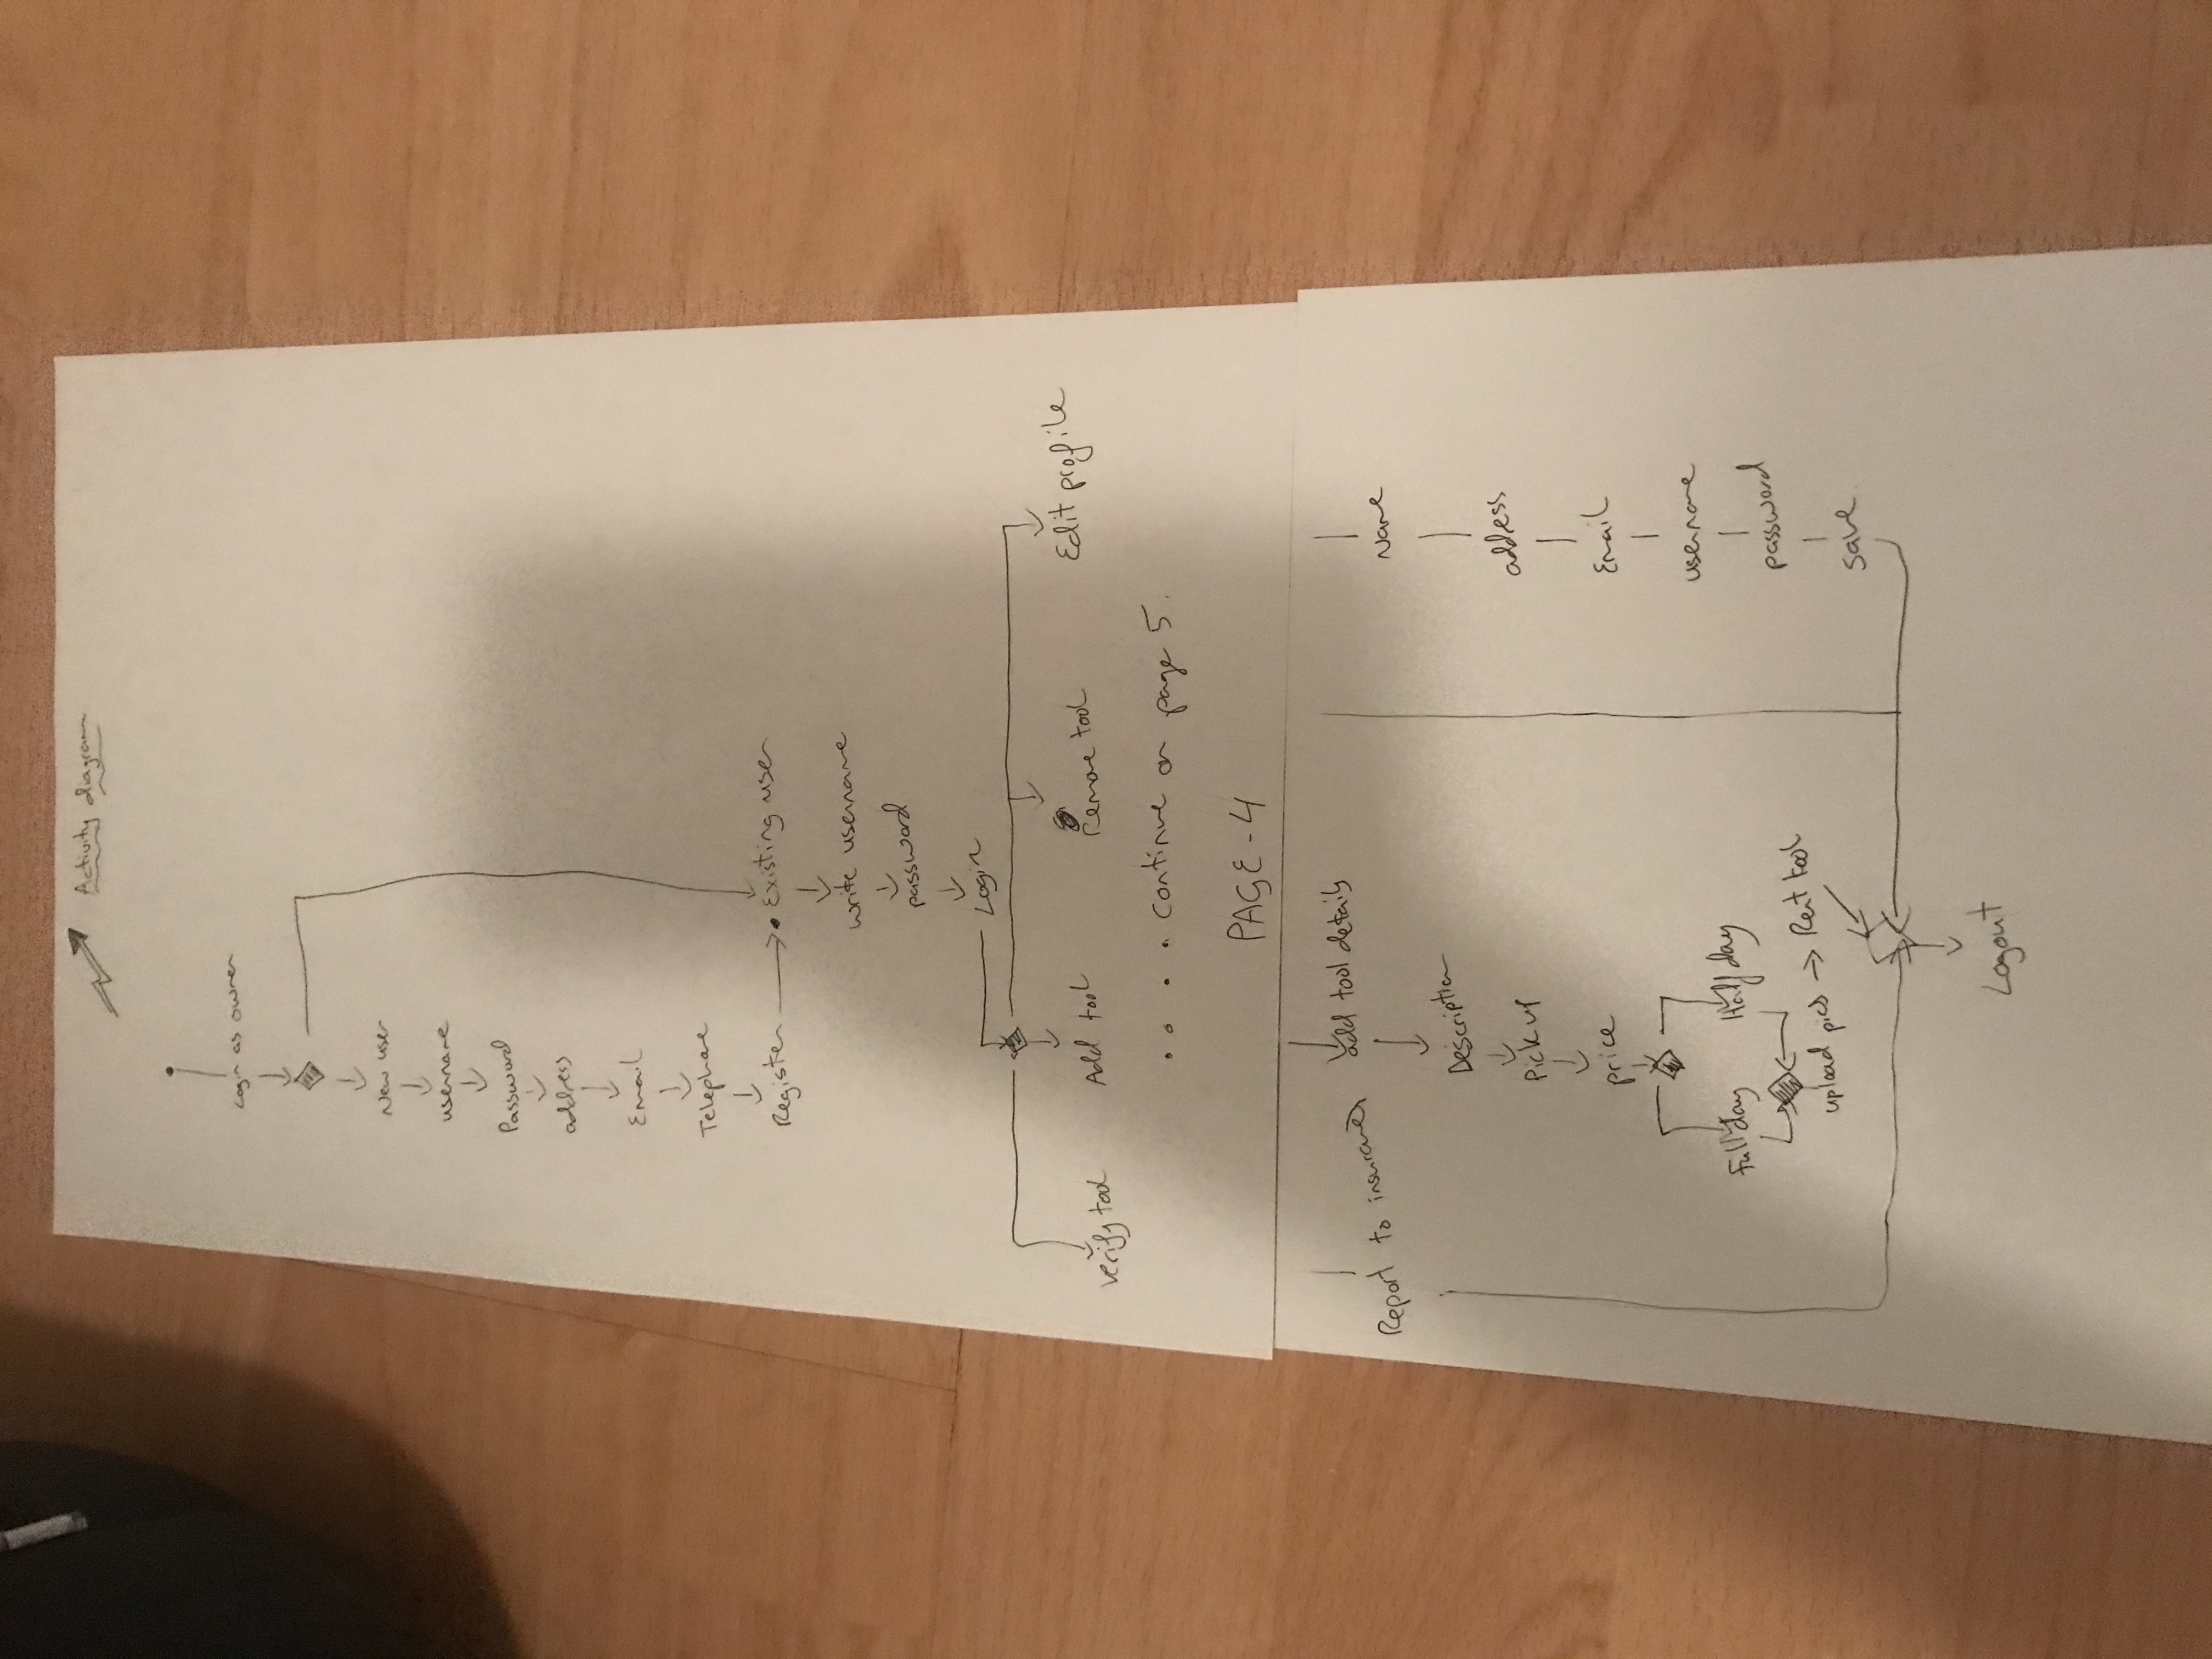 Activity diagram
Login as owner
New user
username
Password
address
Email
Telephone
Register
Existing user
write username
password
Login
Verify tool
Add tool
Remove tool
Edit profile
.. . . continue on page 5.
PAGE-4
Report to insurance
add tool details
Description
Pick up
price
Full day
Half day
upload pics
Rent tool
Name
address
Email
username
password
save
Logout